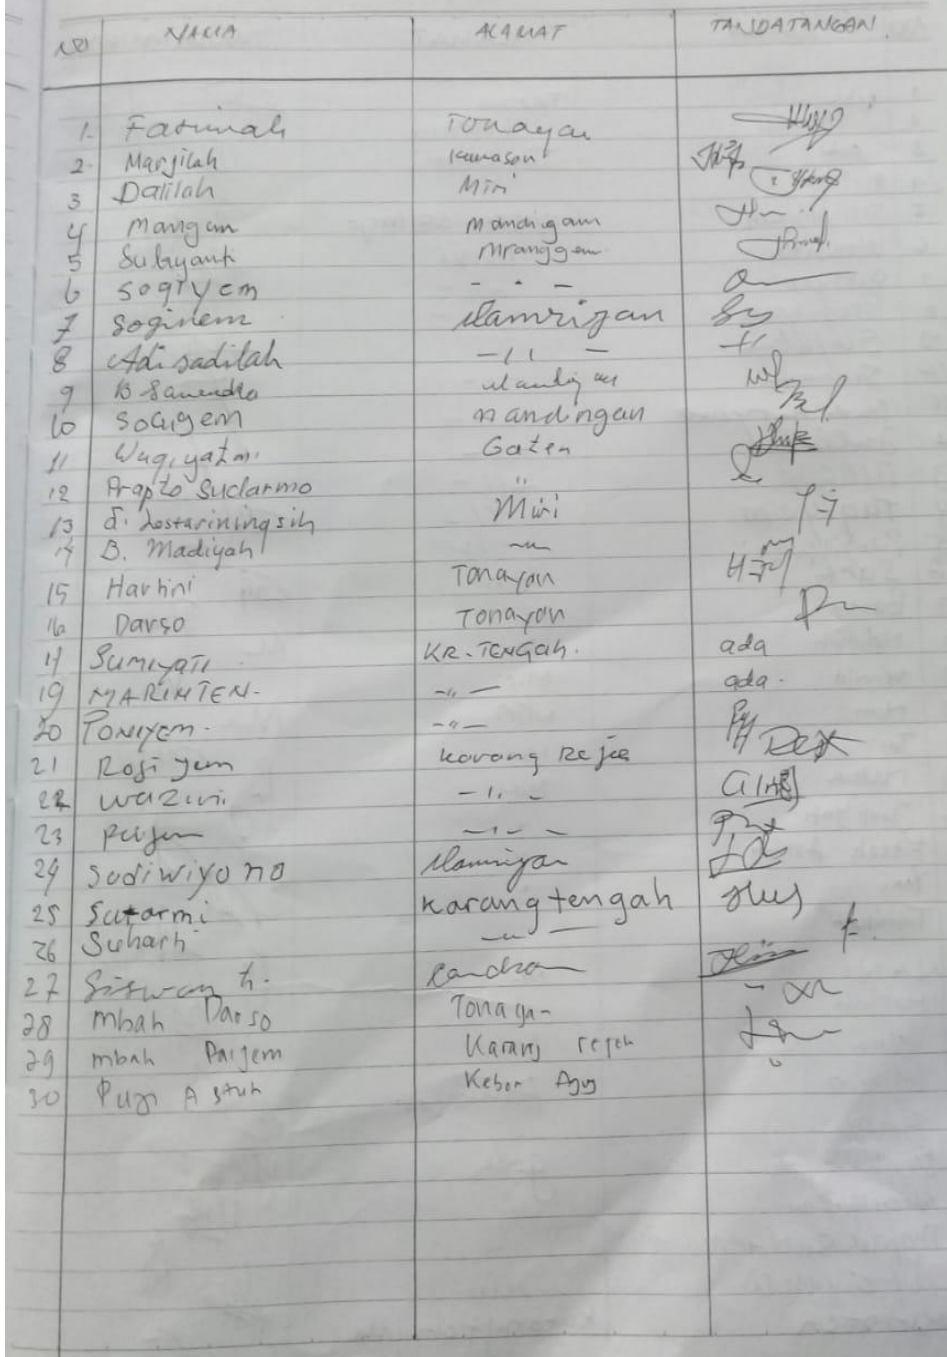 NO NAMA ALAMAT TANDATANGAN
1. Fatimah Tonayan
2. Marjilah Kamasan
3 Dalilah Miri
4 Mangun Mandigan
5 Subyanti Mranggen
6 Sogiyem - - -
7 Soginem Mamrigan
8 Adi sadilah - 11 -
9 B
10 Sougem Mandingan
11 Wagiyatmi Gaten
12 Prapto Sudarmo "
13 S. Lestariningsih Miri
14 B. Madiyah - " -
15 Hartini Tonayan
16 Darso Tonayan
17 Sumiyati KR. TENGAH. ada
19 MARINTEN - - " - ada -
20 PONIYEM - - " -
21 Rosi yem Karang Rejee
22 wazini - 1. -
23 Paijem - 1 - -
24 Sodiwiyono
25 Sutarmi Karangtengah
26 Suharti - " -
27 Siswan h.
28 mbah Darso Tonaya-
29 mbah Parjem Karang rejeh
30 Puji Astuti Kebon Agug